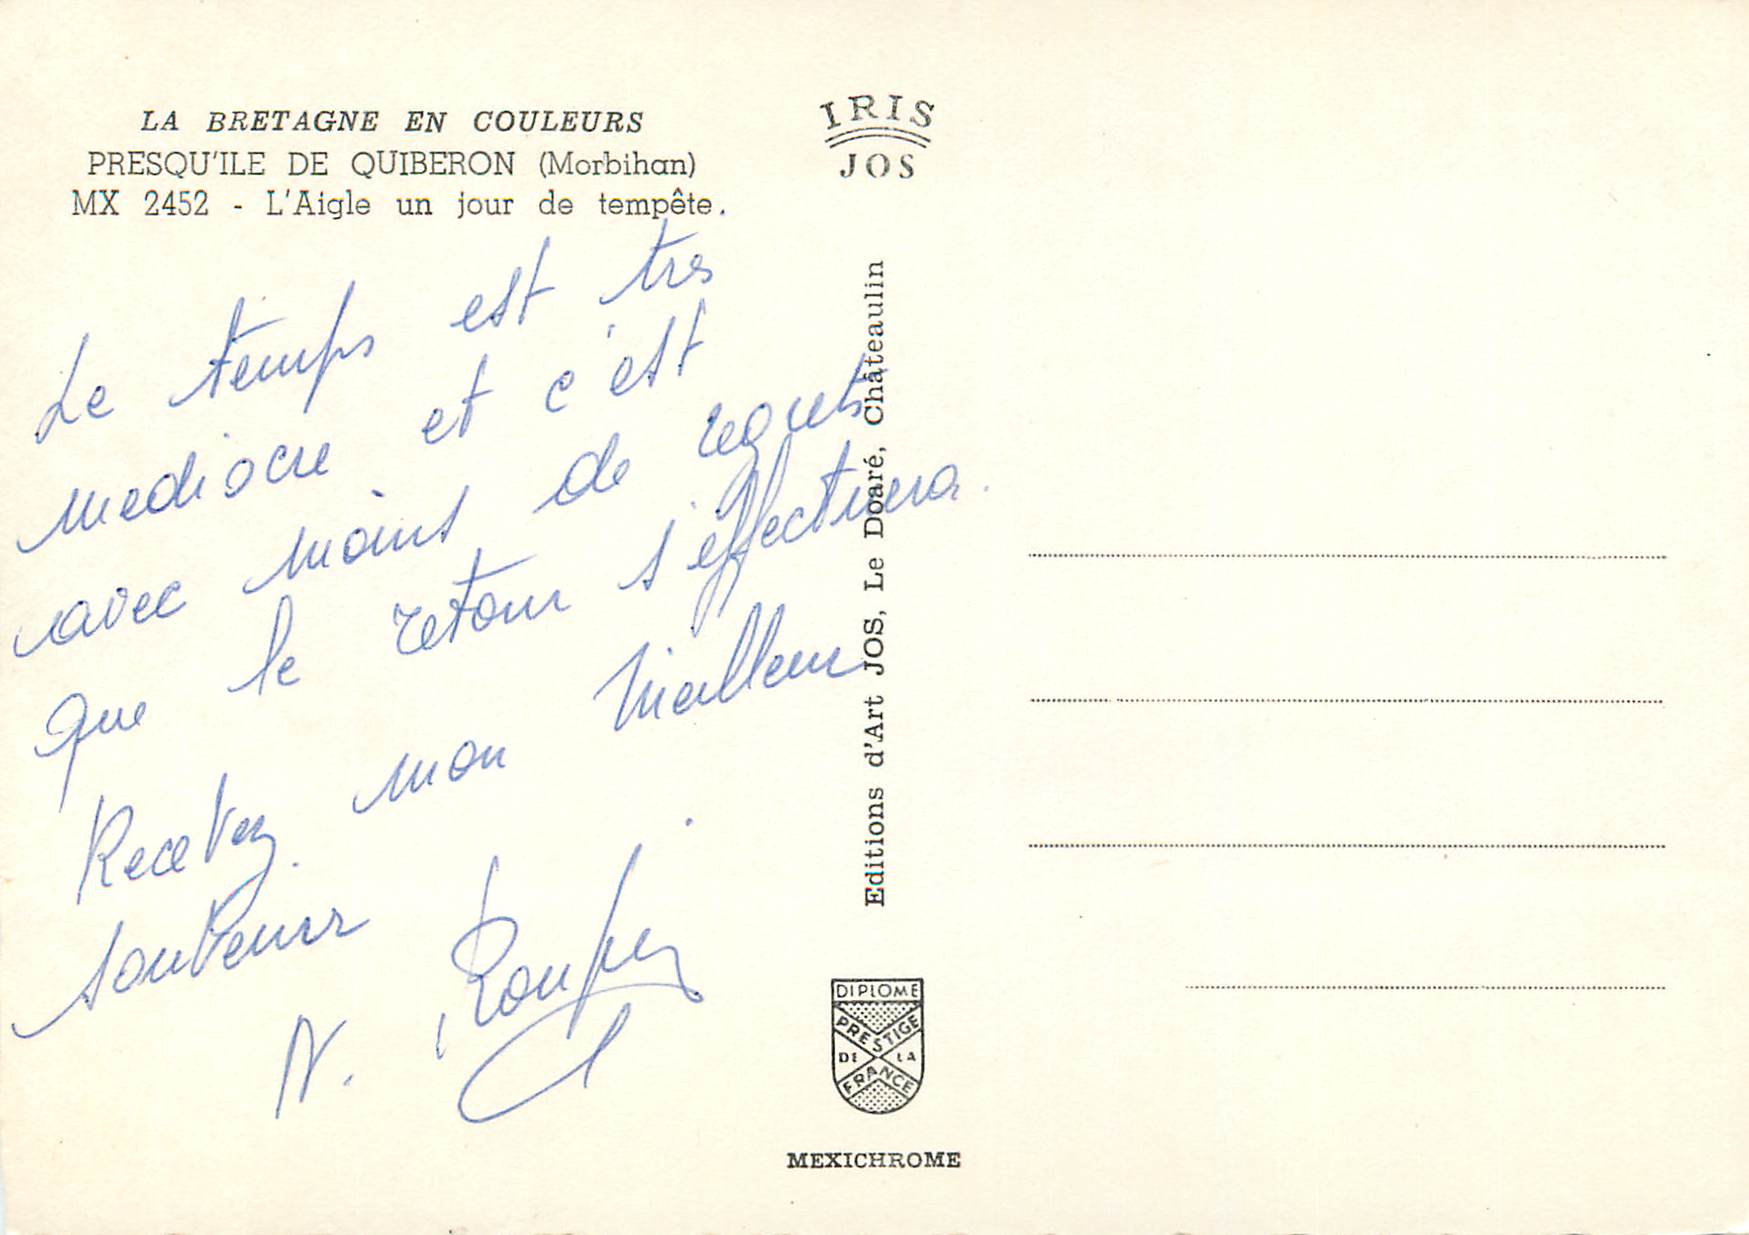 LA BRETAGNE EN COULEURS
PRESQU'ILE DE QUIBERON (Morbihan)
MX 2452 - L'Aigle un jour de tempête.
Le temps est très
médiocre et c'est
avec moins de regrets
que le retour s'effectuera.
Recevez mon meilleur
souvenir
N.
IRIS
JOS
Editions d'Art JOS, Le Doaré, Châteaulin
DIPLOME
PRESTIGE
DE LA
FRANCE
MEXICHROME